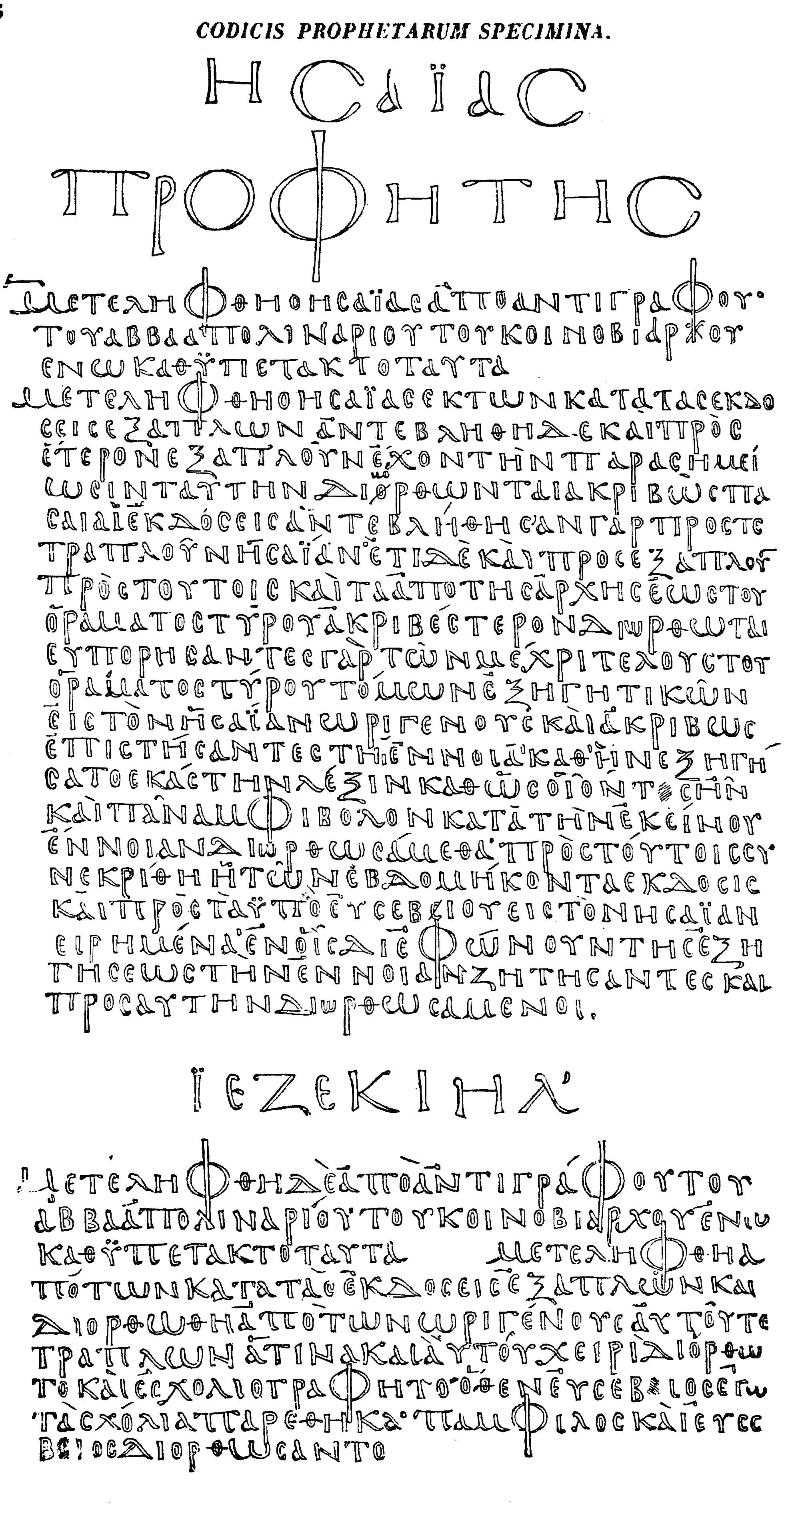 CODICIS PROPHETARUM SPECIMINA.
ΗϹΑΪΑϹ
ΠΡΟΦΗΤΗϹ
ΜΕΤΕΛΗΦΘΗΟΗϹΑΪΑϹΑΠΟΑΝΤΙΓΡΑΦΟΥ·
ΤΟΥΑΒΒΑΑΠΟΛΙΝΑΡΙΟΥΤΟΥΚΟΙΝΟΒΙΑΡΧΟΥ
ΕΝΩΚΑΘΫΠΕΤΑΚΤΟΤΑΥΤΑ
ΜΕΤΕΛΗΦΘΗΟΗϹΑΪΑϹΕΚΤΩΝΚΑΤΑΤΑϹΕΚΔΟ
ϹΕΙϹΕΞΑΠΛΩΝΑΝΤΕΒΛΗΘΗΔΕΚΑΙΠΡΟϹ
ΕΤΕΡΟΝΕΞΑΠΛΟΥΝΕΧΟΝΤΗΝΠΑΡΑϹΗΜΕΙ
ΩϹΙΝΤΑΥΤΗΝΔΙΟΡΘΩΝΤΑΙΑΚΡΙΒΩϹΠΑ
ϹΑΙΑΙΕΚΔΟϹΕΙϹΑΝΤΕΒΛΗΘΗϹΑΝΓΑΡΠΡΟϹΤΕ
ΤΡΑΠΛΟΥΝΗϹΑΪΑΝΕΤΙΔΕΚΑΙΠΡΟϹΕΞΑΠΛΟΥ̅
ΠΡΟϹΤΟΥΤΟΙϹΚΑΙΤΑΑΠΟΤΗϹΑΡΧΗϹΕΩϹΤΟΥ
ΟΡΑΜΑΤΟϹΤΥΡΟΥΑΚΡΙΒΕϹΤΕΡΟΝΔΙΩΡΘΩΤΑΙ
ΕΥΠΟΡΗϹΑΝΤΕϹΓΑΡΤΩΝΜΕΧΡΙΤΕΛΟΥϹΤΟΥ
ΟΡΑΜΑΤΟϹΤΥΡΟΥΤΟΜΩΝΕΞΗΓΗΤΙΚΩΝ
ΕΙϹΤΟΝΗϹΑΪΑΝΩΡΙΓΕΝΟΥϹΚΑΙΑΚΡΙΒΩϹ
ΕΠΙϹΤΗϹΑΝΤΕϹΤΗΕΝΝΟΙΑΚΑΘΗΝΕΞΗΓΗ
ϹΑΤΟΕΚΑϹΤΗΝΛΕΞΙΝΚΑΘΩϹΟΙΟΝΤΕΗΝ
ΚΑΙΠΑΝΑΜΦΙΒΟΛΟΝΚΑΤΑΤΗΝΕΚΕΙΝΟΥ
ΕΝΝΟΙΑΝΔΙΩΡΘΩϹΑΜΕΘΑΠΡΟϹΤΟΥΤΟΙϹϹΥ
ΝΕΚΡΙΘΗΗΤΩΝΕΒΔΟΜΗΚΟΝΤΑΕΚΔΟϹΙϹ
ΚΑΙΠΡΟϹΤΑΫΠΟΕΥϹΕΒΕΙΟΥΕΙϹΤΟΝΗϹΑΪΑΝ
ΕΙΡΗΜΕΝΑΕΝΟΙϹΔΙΕΦΩΝΟΥΝΤΗϹΕΞΗ
ΓΗϹΕΩϹΤΗΝΕΝΝΟΙΑΝΖΗΤΗϹΑΝΤΕϹΚΑΙ
ΠΡΟϹΑΥΤΗΝΔΙΩΡΘΩϹΑΜΕΝΟΙ.
ΪΕΖΕΚΙΗΛ
ΜΕΤΕΛΗΦΘΗΔΕΑΠΟΑΝΤΙΓΡΑΦΟΥΤΟΥ
ΑΒΒΑΑΠΟΛΙΝΑΡΙΟΥΤΟΥΚΟΙΝΟΒΙΑΡΧΟΥΕΝΩ
ΚΑΘΫΠΕΤΑΚΤΟΤΑΥΤΑ ΜΕΤΕΛΗΦΘΗΑ
ΠΟΤΩΝΚΑΤΑΤΑϹΕΚΔΟϹΕΙϹΕΞΑΠΛΩΝΚΑΙ
ΔΙΟΡΘΩΘΗΑΠΟΤΩΝΩΡΙΓΕΝΟΥϹΑΥΤΟΥΤΕ
ΤΡΑΠΛΩΝΑΤΙΝΑΚΑΙΑΥΤΟΥΧΕΙΡΙΔΙΟΡΘΩ
ΤΟΚΑΙΕϹΧΟΛΙΟΓΡΑΦΗΤΟΟΘΕΝΕΥϹΕΒΕΙΟϹΕΓΩ
ΤΑϹΧΟΛΙΑΠΑΡΕΘΗΚΑΠΑΜΦΙΛΟϹΚΑΙΕΥϹΕ
ΒΕΙΟϹΔΙΟΡΘΩϹΑΝΤΟ